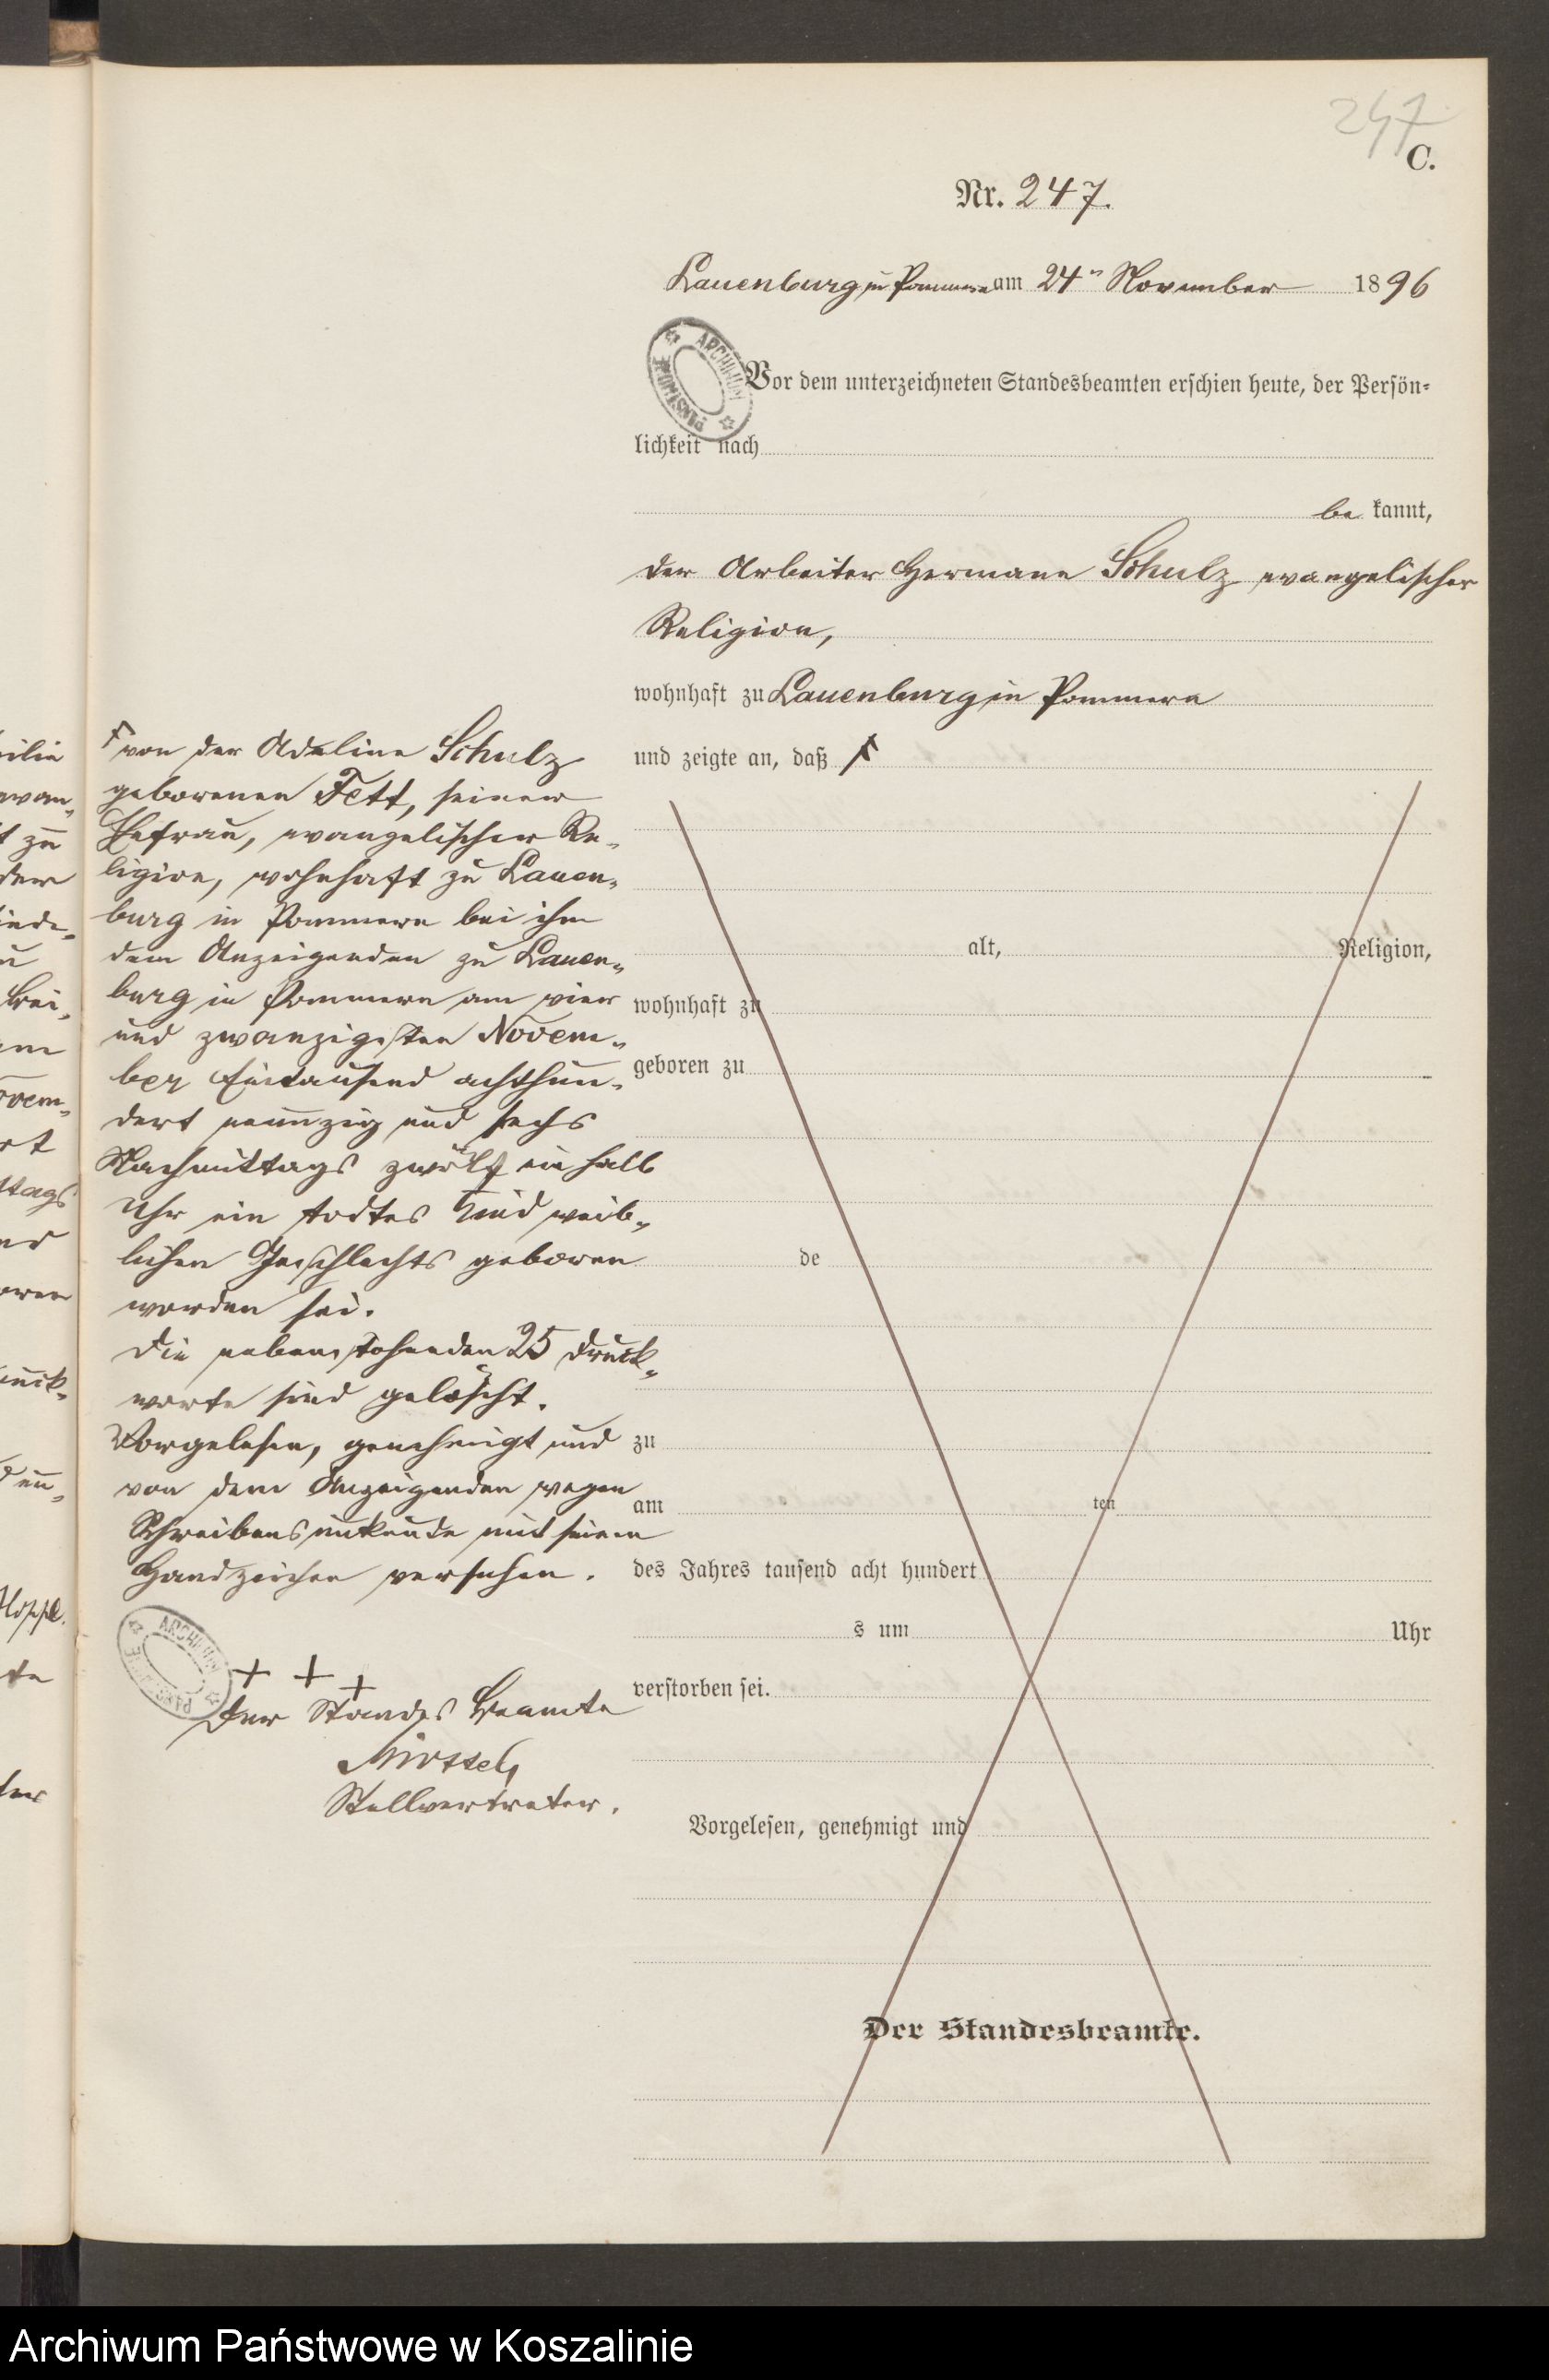 247
C.
Nr. 247.
Lauenburg in Pommern am 24ten November 1896
Vor dem unterzeichneten Standesbeamten erschien heute, der Persön-
lichkeit nach
be kannt,
der Arbeiter Hermann Schulz evangelischer
Religion,
wohnhaft zu Lauenburg in Pommern
und zeigte an, daß
von der Adeline Schulz
geborenen Fett, seiner
Ehefrau, evangelischer Re-
ligion, wohnhaft zu Lauen-
burg in Pommern bei ihm
dem Anzeigenden zu Lauen-
burg in Pommern am vier
und zwanzigsten Novem-
ber Eintausend achthun-
dert neunzig und sechs
Nachmittags zwölf ein halb
Uhr ein todtes Kind weib-
lichen Geschlechts geboren
worden sei.
Die nebenstehenden 25 Druck-
worte sind gelöscht.
Vorgelesen, genehmigt und
von dem Anzeigenden wegen
Schreibensunkunde mit seinem
Handzeichen versehen.
+ + +
Der Standes Beamte
Stellvertreter.
alt, Religion,
wohnhaft zu
geboren zu
de
zu
am ten
des Jahres tausend acht hundert
s um Uhr
verstorben sei.
Vorgelesen, genehmigt und
Der Standesbeamte.
ARCHIWUM
ARCHIWUM
Archiwum Państwowe w Koszalinie